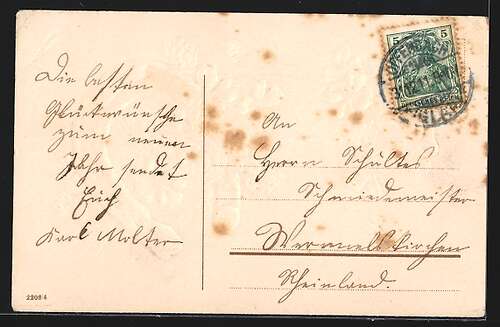 Die besten
Glückwünsche
zum neuen
Jahr sendet
Euch
Karl Molter
An
Herrn Schultes
Schmiedemeister
Wermelskirchen
Rheinland.
5 5
22084